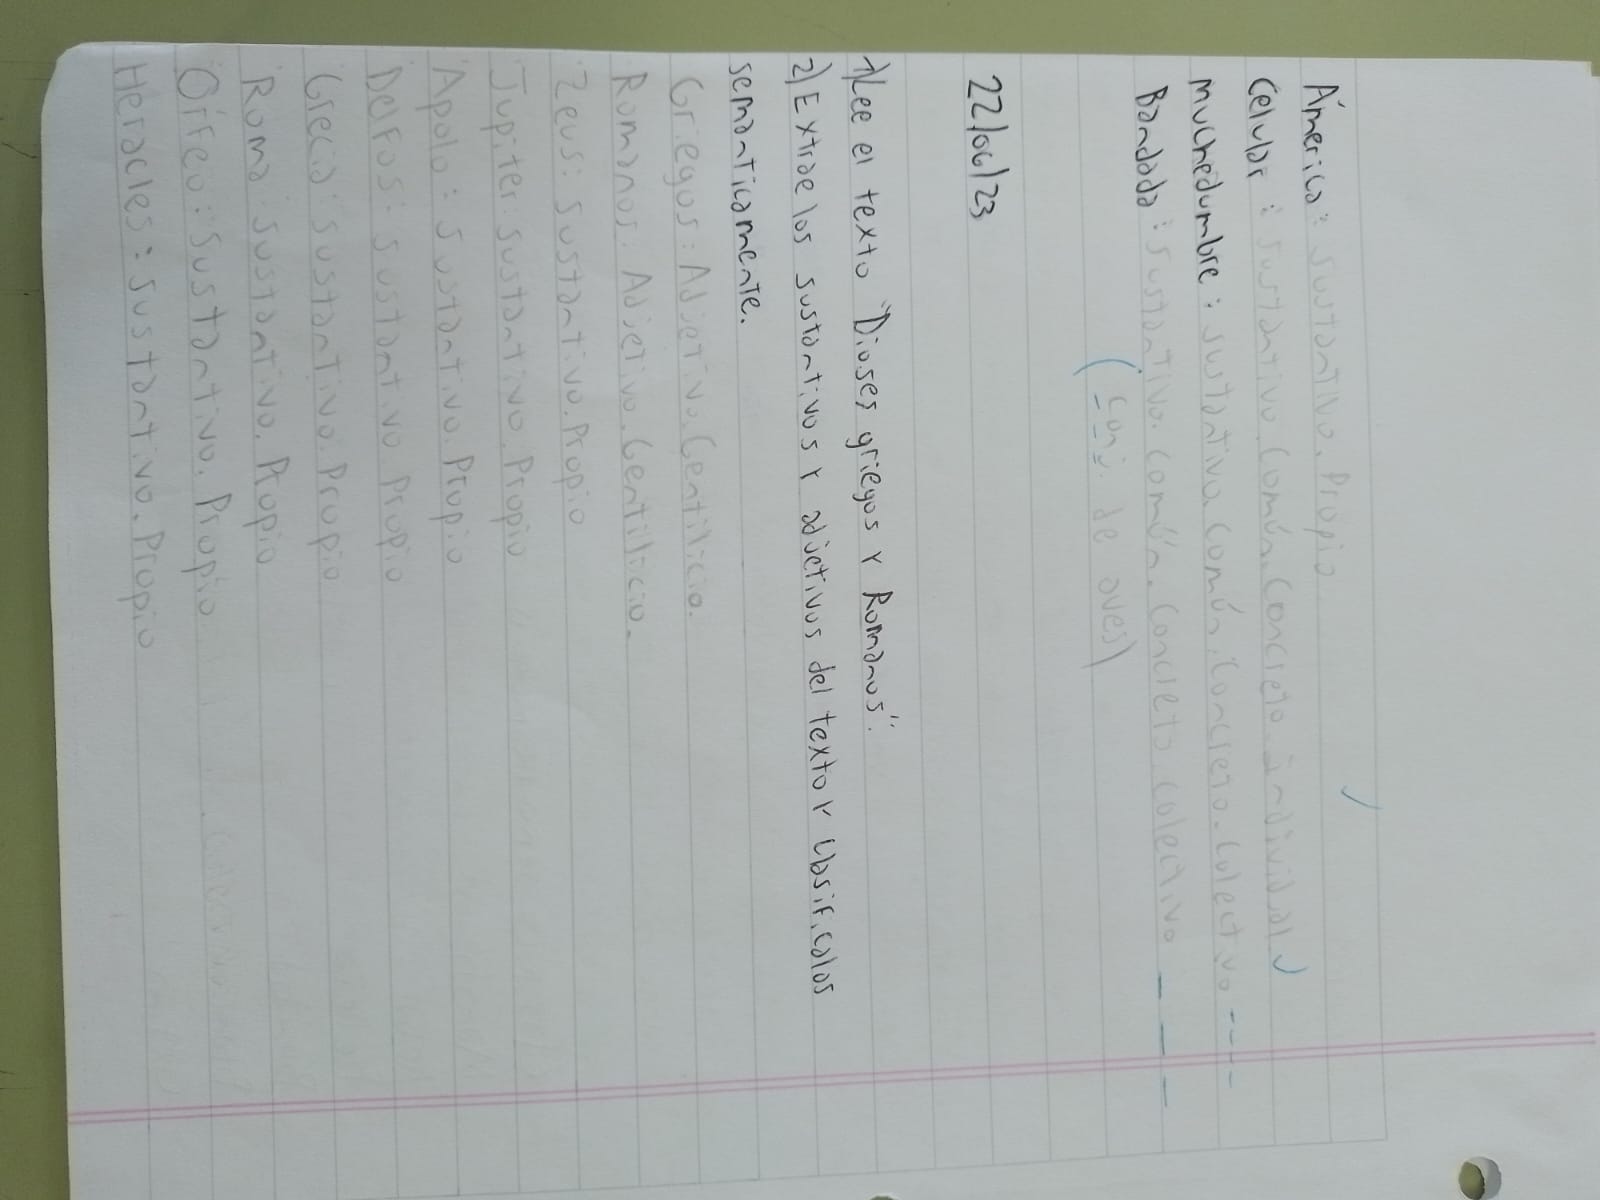 América: sustantivo. Propio
Celular: sustantivo. Común. Concreto. individual
muchedumbre: sustantivo. Común. Concreto. Colectivo
Bandada: sustantivo. Común. Concreto. colectivo
(conj. de aves)
22/06/23
1) Lee el texto "Dioses griegos y Romanos".
2) Extrae los sustantivos y adjetivos del texto y clasificalos
semanticamente.
Griegos: Adjetivo. Gentilicio.
Romanos: Adjetivo. Gentilicio.
Zeus: sustantivo. Propio
Jupiter sustantivo. Propio
Apolo: sustantivo. Propio
Delfos: sustantivo Propio
Grecia: sustantivo. Propio
Roma: sustantivo. Propio
Orfeo: sustantivo. Propio
Heracles: sustantivo. Propio